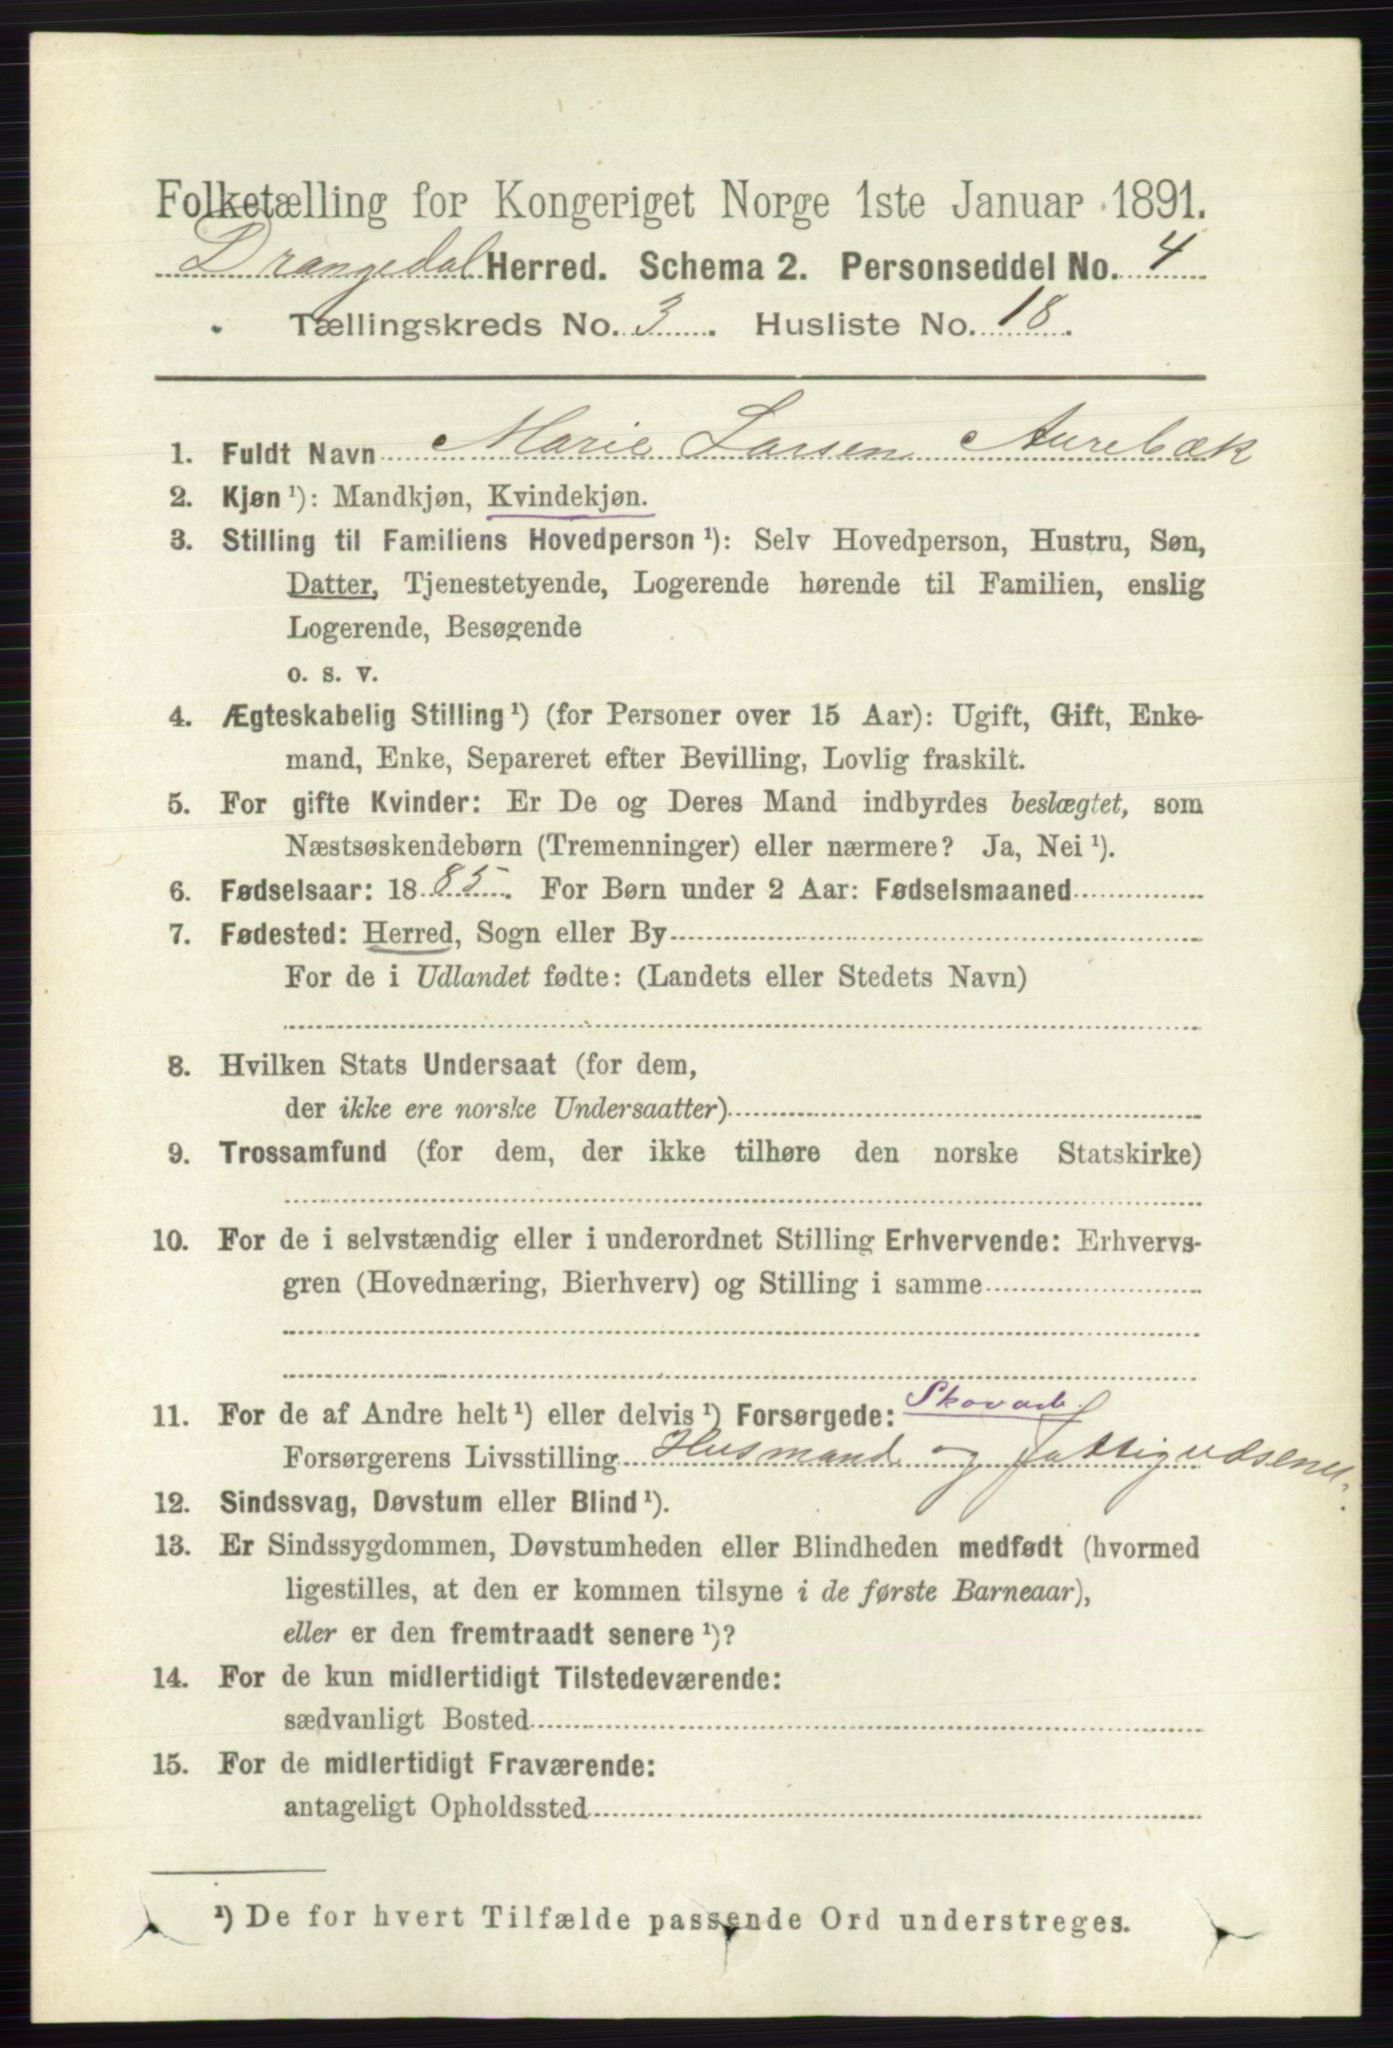 Folketælling for Kongeriget Norge 1ste Januar 1891.
Drangedal Herred. Schema 2. Personseddel No. 4
Tællingskreds No. 3. Husliste No. 18.
1. Fuldt Navn Marie Larsen Aurebæk
2. Kjøn ¹): Mandkjøn, Kvindekjøn.
3. Stilling til Familiens Hovedperson ¹): Selv Hovedperson, Hustru, Søn,
Datter, Tjenestetyende, Logerende hørende til Familien, enslig
Logerende, Besøgende
o. s. v.
4. Ægteskabelig Stilling ¹) (for Personer over 15 Aar): Ugift, Gift, Enke-
mand, Enke, Separeret efter Bevilling, Lovlig fraskilt.
5. For gifte Kvinder: Er De og Deres Mand indbyrdes beslægtet, som
Næstsøskendebørn (Tremenninger) eller nærmere? Ja, Nei ¹).
6. Fødselsaar: 1885. For Børn under 2 Aar: Fødselsmaaned
7. Fødested: Herred, Sogn eller By
For de i Udlandet fødte: (Landets eller Stedets Navn)
8. Hvilken Stats Undersaat (for dem,
der ikke ere norske Undersaatter)
9. Trossamfund (for dem, der ikke tilhøre den norske Statskirke)
10. For de i selvstændig eller i underordnet Stilling Erhvervende: Erhvervs-
gren (Hovednæring, Bierhverv) og Stilling i samme
11. For de af Andre helt ¹) eller delvis ¹) Forsørgede: Skovarb.
Forsørgerens Livsstilling Husmand og
12. Sindssvag, Døvstum eller Blind ¹).
13. Er Sindssygdommen, Døvstumheden eller Blindheden medfødt (hvormed
ligestilles, at den er kommen tilsyne i de første Barneaar),
eller er den fremtraadt senere ¹)?
14. For de kun midlertidigt Tilstedeværende:
sædvanligt Bosted
15. For de midlertidigt Fraværende:
antageligt Opholdssted
¹) De for hvert Tilfælde passende Ord understreges.